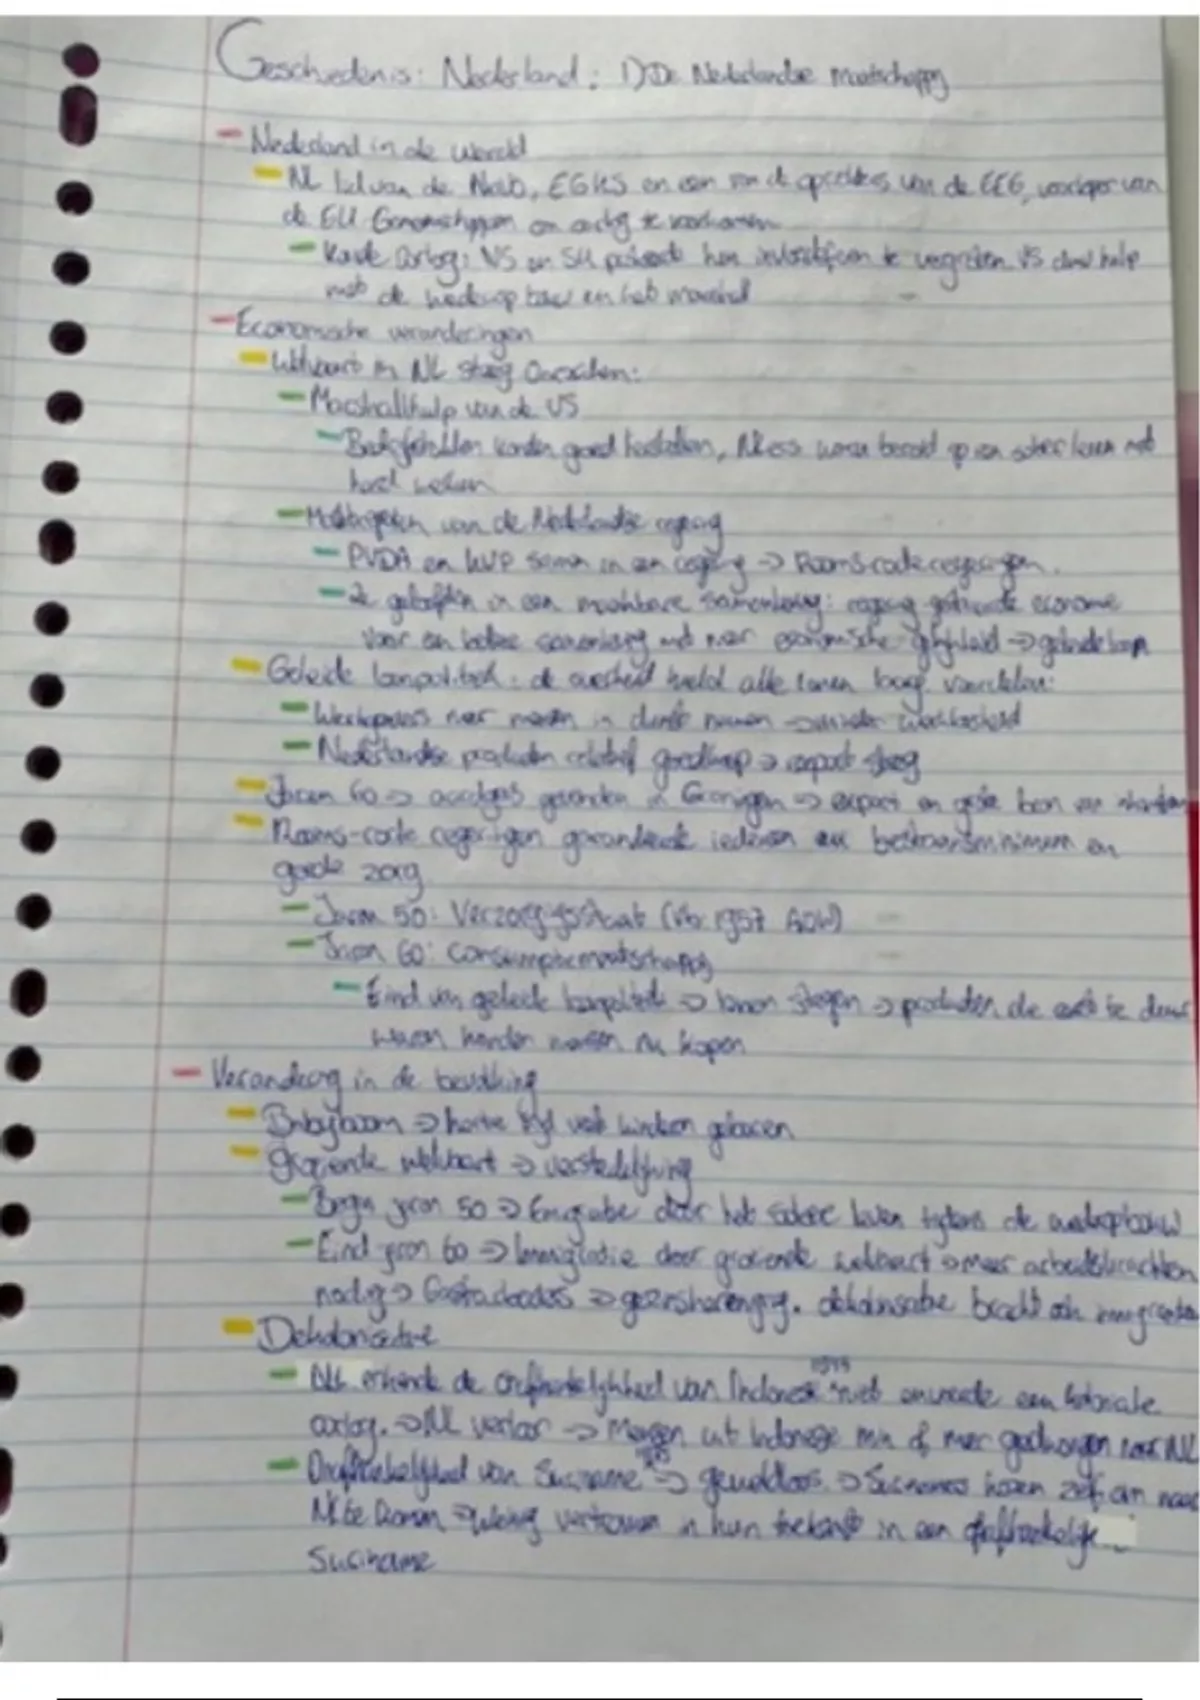 Geschiedenis: Nederland: 1) De Nederlandse maatschappij
- Nederland in de wereld
- NL lid van de Navo, EGKS en een van de oprichters van de EEG, voorloper van
de EU Gemeenschappen om oorlog te voorkomen
- Koude Oorlog: VS en SU probeerde hun invloedsfeer te vergroten VS deed hulp
met de wederopbouw en het marshal
- Economische veranderingen
- Welvaart in NL steeg Oorzaken:
- Marshallhulp van de VS
- Bedrijven konden goed herstellen, NLers waren bereid op een sober leven met
hard werken
- Maatregelen van de Nederlandse regering
- PVDA en KVP samen in een regering → Rooms-rode regeringen.
- Ze geloofden in een maakbare samenleving: regering economie
voor een betere samenleving met meer economische gelijkheid → geleide loon
- Geleide loonpolitiek: de overheid hield alle lonen laag. voordelen:
- Werkgevers meer mensen in dienst nemen → minder werkloosheid
- Nederlandse producten relatief goedkoop → export steeg
- Jaren 60 → aardgas gevonden in Groningen → export en grote bron van inkomsten
- Rooms-rode regeringen garandeerde iedereen een bestaansminimum en
goede zorg
- Jaren 50: Verzorgingsstaat (vb: 1957 AOW)
- Jaren 60: Consumptiemaatschappij
- Eind van geleide loonpolitiek → lonen stegen → producten die eerst te duur
waren konden mensen nu kopen
- Verandering in de bevolking
- Babyboom → korte tijd veel kinderen geboren
- groeiende welvaart → verstedelijking
- Begin jaren 50 → Emigratie door het sobere leven tijdens de wederopbouw
- Eind jaren 60 → Immigratie door groeiende welvaart → meer arbeidskrachten
nodig → Gastarbeiders → gezinshereniging. dekolonisatie bracht ook immigranten
- Dekolonisatie
- NL erkende de onafhankelijkheid van Indonesië 1945 niet en voerde een koloniale
oorlog. → NL verloor → Mensen uit Indonesië min of meer gedwongen naar NL
- Onafhankelijkheid van Suriname 1975 → geweldloos. → Surinamers kozen zelf om naar
NL te komen → weinig vertrouwen in hun toekomst in een onafhankelijke
Suriname